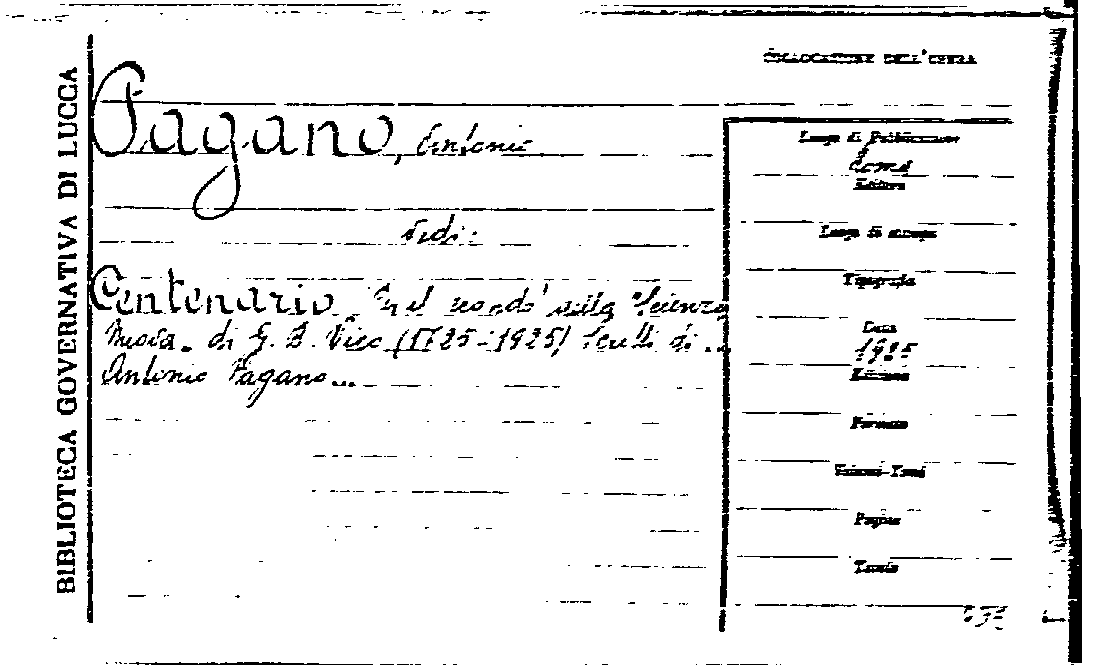 BIBLIOTECA GOVERNATIVA DI LUCCA
COLLOCAZIONE DELL'OPERA
Pagano, Antonio
Vedi:
Centenario. Per il secondo della "Scienza
Nuova" di G. B. Vico (1725-1925) Scritti di ...
Antonio Pagano...
Luogo di Pubblicazione
Roma
Editore
Luogo di stampa
Tipografia
Data
1925
Edizione
Formato
Volumi-Tomi
Pagine
Tavole